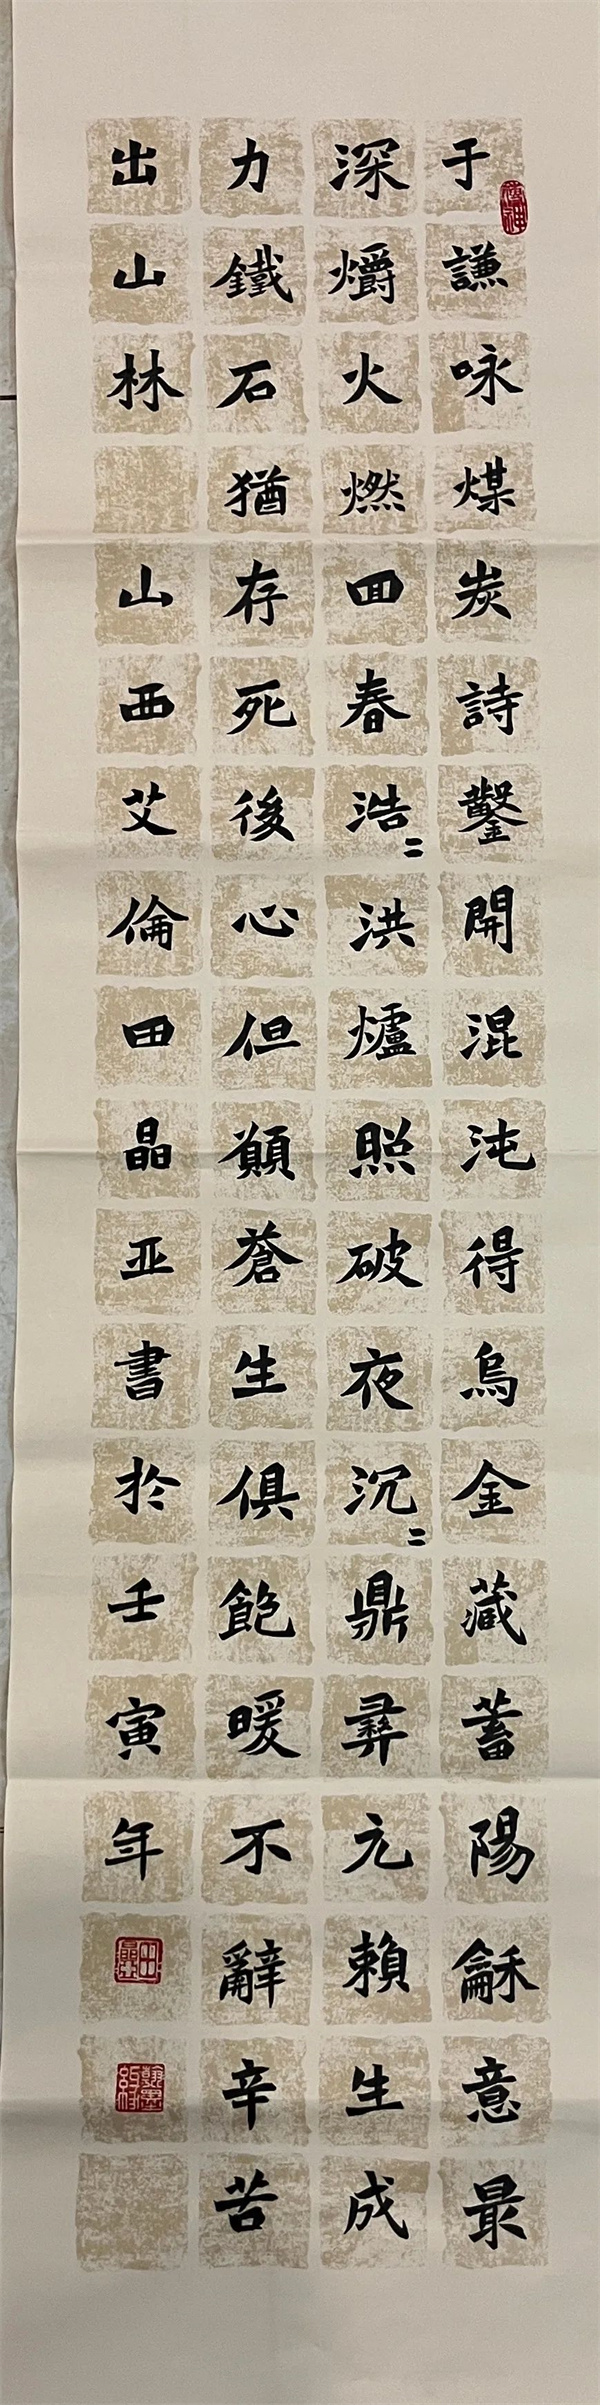 于謙咏煤炭詩鑿開混沌得烏金藏蓄陽龢意最
深爝火燃回春浩〻洪爐照破夜沉〻鼎彝元賴生成
力鐵石猶存死後心但願蒼生俱飽暖不辭辛苦
出山林 山西艾倫田晶亚書於壬寅年
田晶亚
翰墨緣